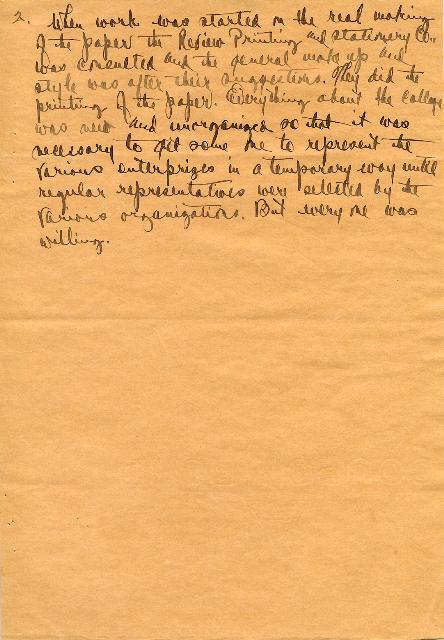 2. When work was started on the real making
of the paper the Review Printing and Stationery Co.,
was consulted and the general make up and
style was after their suggestions. They did the
printing of the paper. Everything about the college
was new and unorganized so that it was
necessary to get some one to represent the
various enterprizes in a temporary way until
regular representatives were selected by the
various organizations. But every one was
willing.